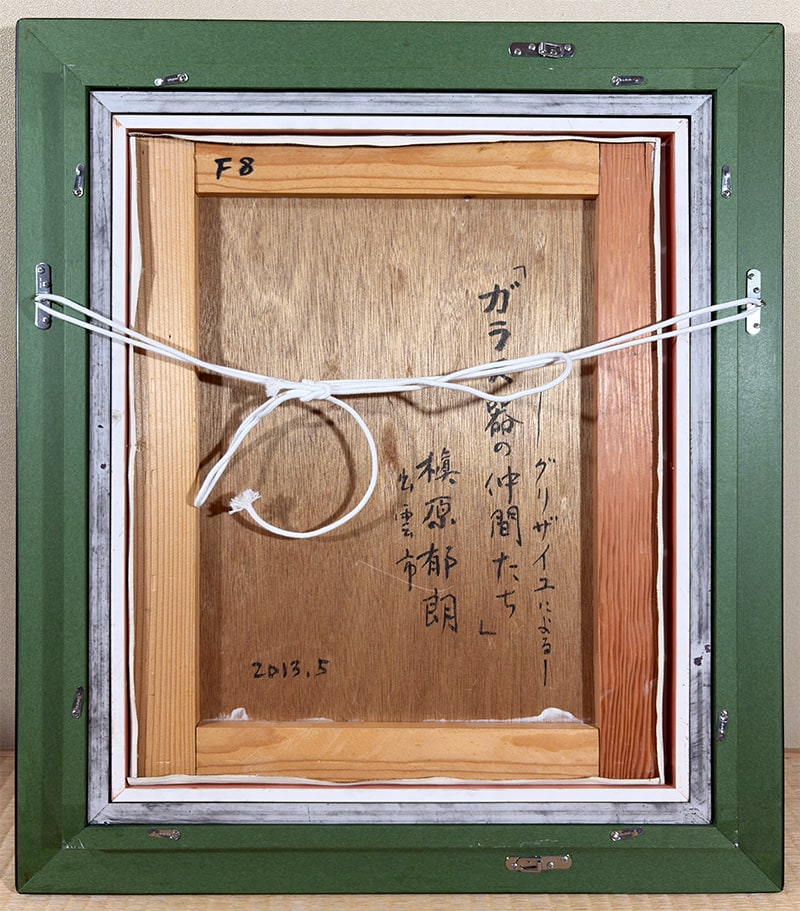 F8
「ガラス器の仲間たち」
―グリザイユによる―
槇原郁朗
出雲市
2013.5